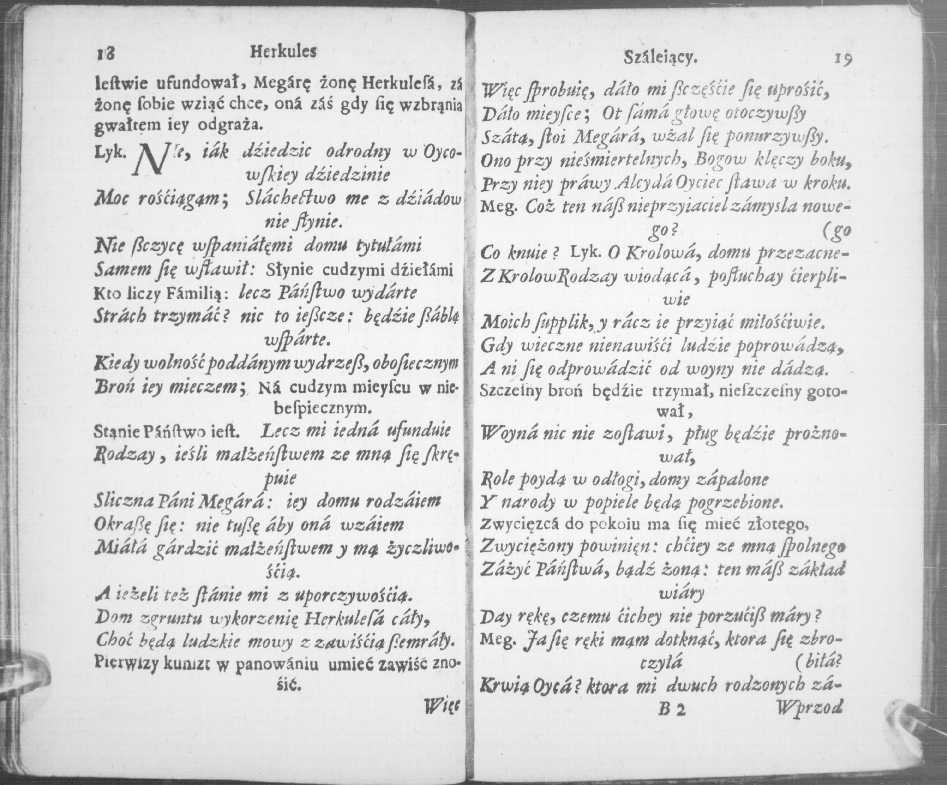 18 Herkules
leſtwie ufundował, Megárę żonę Herkuleſá, zá
żonę ſobie wziąć chce, oná záś gdy ſię wzbrąnia
gwałtem iey odgraża.
Lyk. Nie, iák dźiedzic odrodny w Oyco-
wſkiey dźiedzinie
Moc rośćiągąm; Sláchectwo me z dźiádow
nie ſłynie.
Nie ßczycę wſpaniáłęmi domu tytułámi
Samem ſię wſławił: Słynie cudzymi dźiełámi
Kto liczy Fámilią: lecz Páńſtwo wydárte
Strách trzymáć? nic to ieſzcze: będźie ßáblą
wſpárte.
Kiedy wolność poddánym wydrzeß, oboſiecznym
Broń iey mieczem; Ná cudzym mieyſcu w nie-
beſpiecznym.
Stąnie Páńſtwo ieſt. Lecz mi iedná ufunduie
Rodzay, ieśli małżeńſtwem ze mną ſię ſkrę-
puie
Sliczna Páni Megárá: iey domu rodzáiem
Okraßę ſię: nie tußę áby oná wzáiem
Miáłá gárdzić małżeńſtwem y mą życzliwo-
śćią.
A ieżeli też ſtánie mi z uporczywośćią.
Dom zgruntu wykorzenię Herkuleſá cáły,
Choć będą ludzkie mowy z zawiśćią ſzemráły.
Pierwſzy kunſzt w panowániu umieć zawiść zno-
śić.
Więc
Száleiący. 19
Więc ſprobuię, dáło mi ßczęśćie ſię uprośić,
Dáło mieyſce; Ot ſámá głowę otoczywßy
Szátą, ſtoi Megárá, wżal ſię ponurzywßy.
Ono przy nieśmiertelnych, Bogow klęczy boku,
Przy niey práwy Alcydá Oyciec ſtawa w kroku.
Meg. Coż ten náß nieprzyiaciel zámyśla nowe-
go? (go
Co knuie? Lyk. O Krolowá, domu przezacne-
Z Krolow Rodzay wiodącá, poſłuchay ćierpli-
wie
Moich ſupplik, y rácz ie przyiąć miłośćiwie.
Gdy wieczne nienawiśći ludźie poprowádzą,
A ni ſię odprowádźić od woyny nie dádzą.
Szczeſny broń będźie trzymał, nieſzczeſny goto-
wał,
Woyná nic nie zoſtawi, pług będźie prożno-
wał,
Role poydą w odłogi, domy zápalone
Y narody w popiele będą pogrzebione.
Zwycięzcá do pokoiu ma ſię mieć złotego,
Zwyciężony powinięn: chćiey ze mną ſpolnego
Záżyć Páńſtwá, bądź żoną: ten máß zákład
wiáry
Day rękę, czemu ćichey nie porzućiß máry?
Meg. Ja ſię ręki mąm dotknąć, ktora ſię zbro-
czyłá (biłá?
Krwią Oycá? ktora mi dwuch rodzonych zá-
B 2 Wprzod